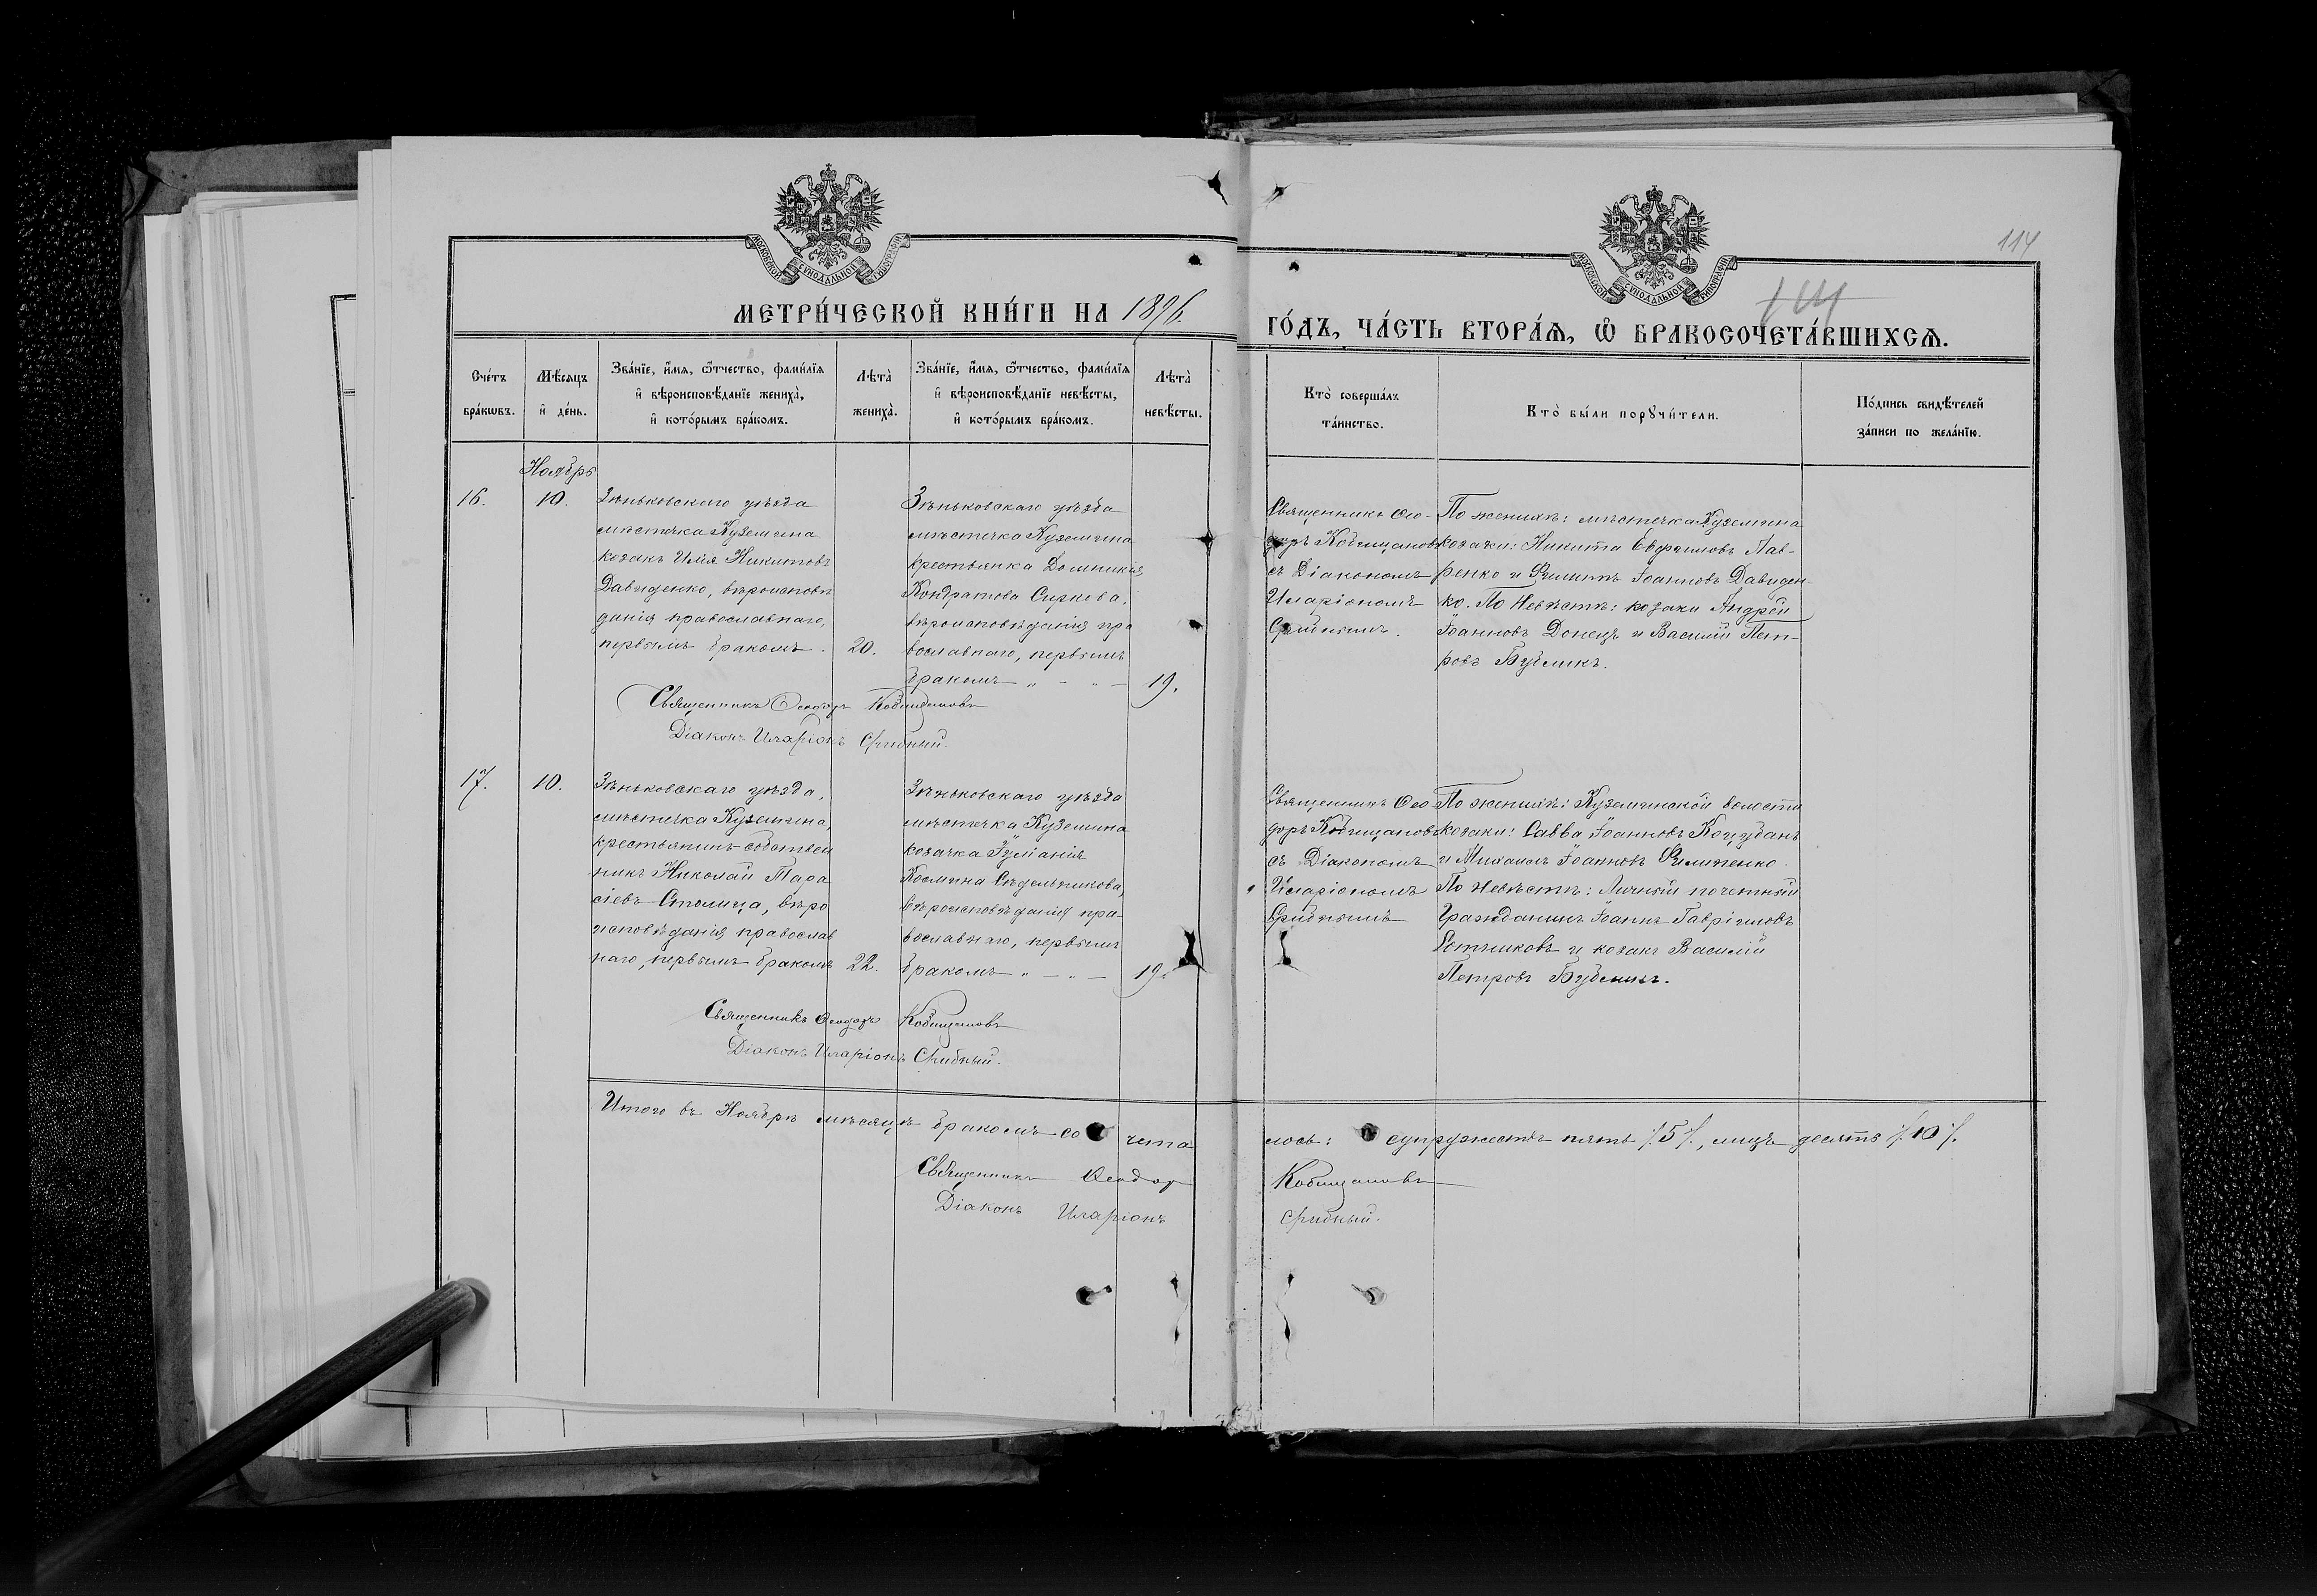 114
МОСКОВСКОЙ СѴНОДАЛЬНОЙ ТИПОГРАФІИ
МОСКОВСКОЙ СѴНОДАЛЬНОЙ ТИПОГРАФІИ
МЕТРИ́ЧЕСКОЙ КНИ́ГИ НА 1896.
ГО́ДЪ, ЧА́СТЬ ВТОРА́Ѧ, Ѽ БРАКОСОЧЕТА́ВШИХСѦ.
Сче́тъ бра́кѡвъ.
Мѣ́сяцъ и҆ де́нь.
Зва́нїе, и҆́мѧ, ѻ҆́тчество, фами́лїѧ
и҆ вѣроисповѣ́данїе жениха̀,
и҆ кото́рымъ бра́комъ.
Лѣта̀ жениха̀.
Зва́нїе, и҆́мѧ, ѻ҆́тчество, фами́лїѧ
и҆ вѣроисповѣ́данїе невѣ́сты,
и҆ кото́рымъ бра́комъ.
Лѣта̀ невѣ́сты.
Кто̀ соверша́лъ
та́инство.
Кто̀ бы́ли порꙋчи́тели.
По́дпись свидѣ́телей
за́писи по жела́нїю.
Ноябрь
16.
10.
Зѣньковскаго уѣзда
мѣстечка Куземина
козакъ Илія Никитовъ
Давиденко, вѣроисповѣ
данія православнаго,
первымъ бракомъ.
20.
Зѣньковскаго уѣзда
мѣстечка Куземина
крестьянка Домникія
Кондратова Сиркева,
вѣроисповѣданія пра
вославнаго, первымъ
бракомъ „ – „ –
19.
Священникъ Ѳео-
доръ Кобищановъ
съ Діакономъ
Иларіономъ
Срибнымъ.
По женихѣ: мѣстечка Куземина
козаки: Никита Евфимовъ Лав-
ренко и Филиппъ Іоанновъ Давиден-
ко. По Невѣстѣ: козаки Андрей
Іоанновъ Донецъ и Василій Пет-
ровъ Бубликъ.
Священникъ Ѳеодоръ Кобищановъ
Діаконъ Иларіонъ Срибный.
17.
10.
Зѣньковскаго уѣзда,
мѣстечка Куземина,
крестьянинъ-собствен
никъ Николай Тара
сіевъ Столица, вѣро
исповѣданія православ
наго, первымъ бракомъ
22.
Зѣньковскаго уѣзда
мѣстечка Куземина
козачка Іуліанія
Космина Сѣдельникова,
вѣроисповѣданія пра-
вославнаго, первымъ
бракомъ „ – „ –
19.
Священникъ Ѳео
доръ Кобищановъ
съ Діакономъ
Иларіономъ
Срибнымъ
По женихѣ: Куземинской волости
козаки: Савва Іоанновъ Коцубанъ
и Михаилъ Іоанновъ Филипенко.
По Невѣстѣ: Личный почетный
Гражданинъ Іоаннъ Гавріиловъ
Сотниковъ и козакъ Василій
Петровъ Бубликъ.
Священникъ Ѳеодоръ Кобищановъ
Діаконъ Иларіонъ Срибный.
Итого въ Ноябрѣ мѣсяцѣ бракомъ сочета
лось: супружествъ пять /5/, лицъ десять /10/.
Священникъ Ѳеодор Кобищановъ
Діаконъ Иларіонъ Срибный.